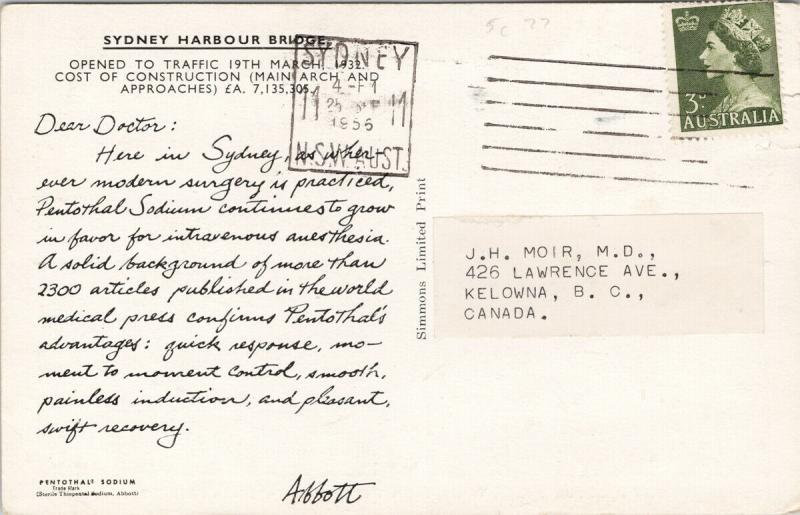 5c 77
SYDNEY HARBOUR BRIDGE.
OPENED TO TRAFFIC 19TH MARCH, 1932.
COST OF CONSTRUCTION (MAIN ARCH AND
APPROACHES) £A. 7,135,305.
SYDNEY
4-PM
1955
N.S.W. AUST.
3D
AUSTRALIA
Dear Doctor:
Here in Sydney, as wher-
ever modern surgery is practiced,
Pentothal Sodium continues to grow
in favor for intravenous anesthesia.
A solid background of more than
2300 articles published in the world
medical press confirms Pentothal's
advantages: quick response, mo-
ment to moment control, smooth,
painless induction, and pleasant,
swift recovery.
Abbott
PENTOTHAL® SODIUM
Trade Mark
(Sterile Thiopental Sodium, Abbott)
Simmons Limited Print
J.H. MOIR, M.D.,
426 LAWRENCE AVE.,
KELOWNA, B. C.,
CANADA.